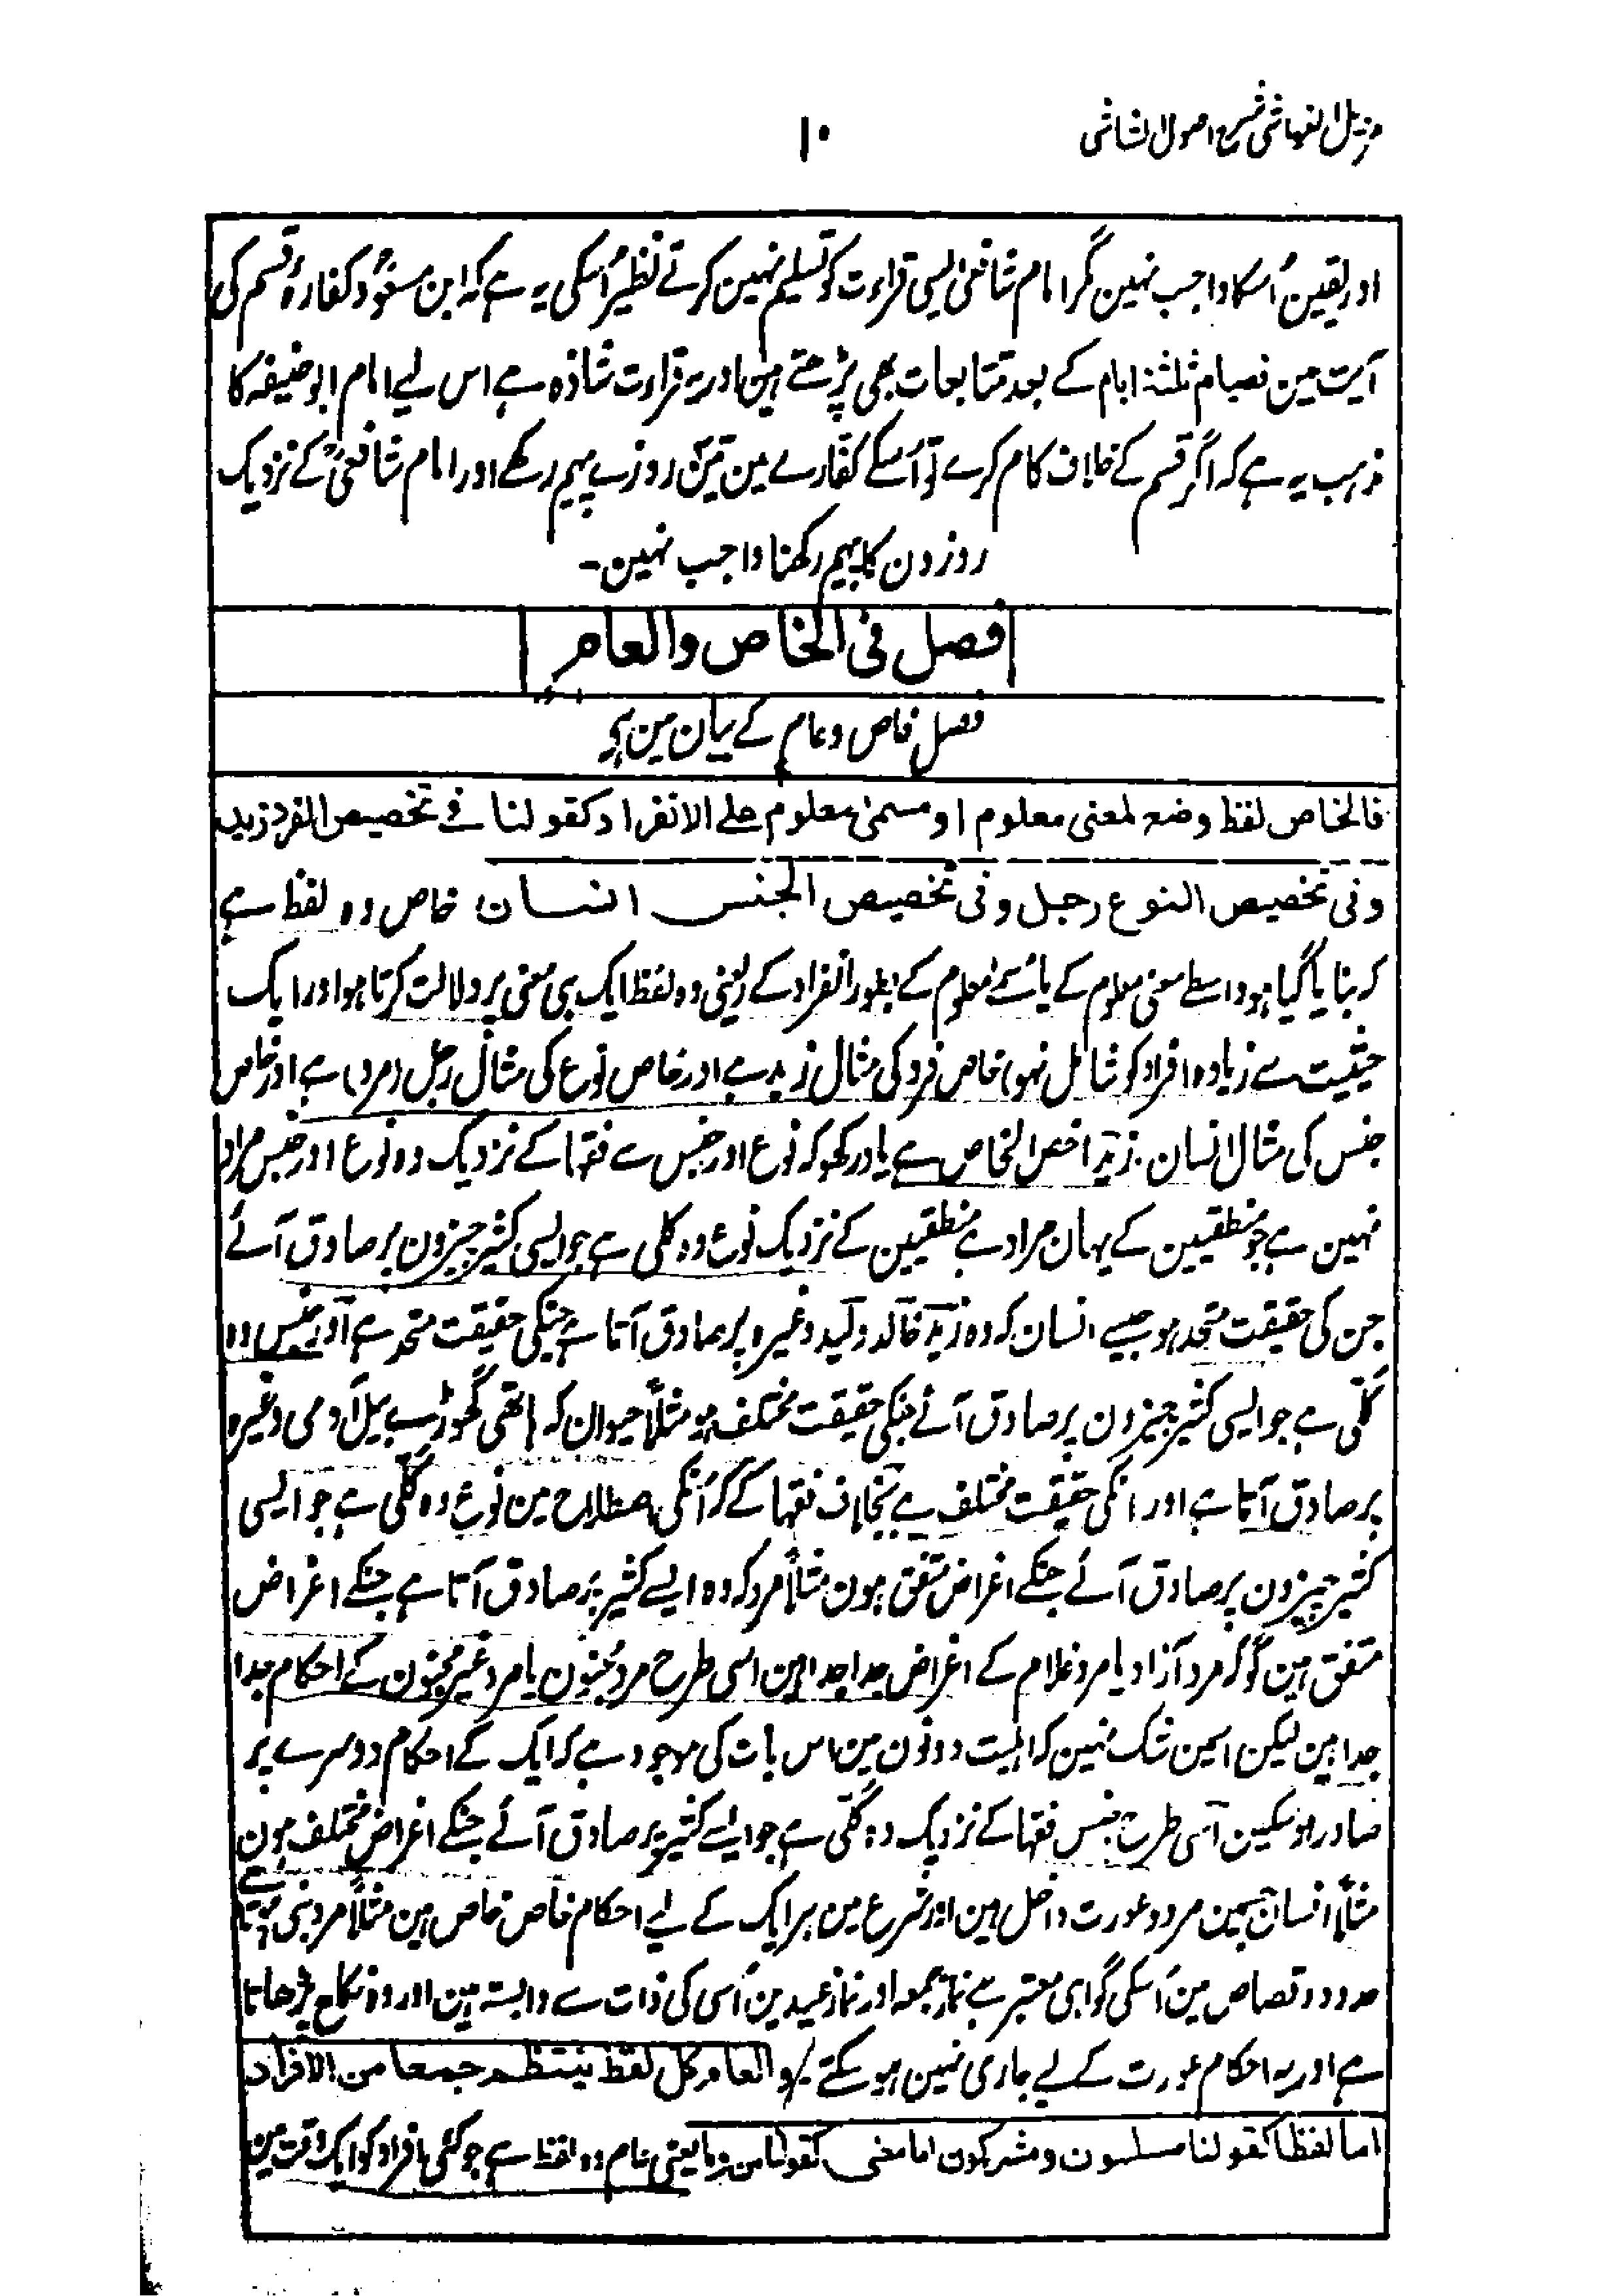 مزیل الغواشی شرح اصول الشاشی
۱۰
اور یقین اُسکا واجب نہین مگر امام شافعی ایسی قراءت کو تسلیم نہین کرتے نظیر اُسکی یہ ہے کہ ابن مسعودؓ کفارۂ قسم کی
آیت مین فصیام ثلثۃ ایام کے بعد متتابعات بھی پڑھتے ہین اور یہ قراءت شاذہ ہے اس لیے امام ابوحنیفہ کا
مذہب یہ ہے کہ اگر قسم کے خلاف کام کرے تو اُسکے کفارے مین تین روزے پیہم رکھے اور امام شافعیؒ کے نزدیک
روزون کا پیہم رکھنا واجب نہین-
فصل فی الخاص والعام
فصل خاص و عام کے بیان مین ہے
فالخاص لفظ وضع لمعنی معلوم او مسمیٰ معلوم علے الانفراد کقولنا فے تخصیص الفرد زید
وفی تخصیص النوع رجل وفی تخصیص الجنس انسان خاص وہ لفظ ہے
کہ بنایا گیا ہو واسطے معنی معلوم کے یا مسمےٰ معلوم کے بطور انفراد کے (یعنی وہ لفظ ایک ہی معنی پر دلالت کرتا ہو اور ایک
حیثیت سے زیادہ افراد کو شامل نہو) خاص فرد کی مثال زید ہے اور خاص نوع کی مثال رجل (مرد) ہے اور خاص
جنس کی مثال انسان۔ زید اخص الخاص ہے یاد رکھو کہ نوع اور جنس سے فقہا کے نزدیک وہ نوع اور جنس مراد
نہین ہے جو منطقیین کے یہان مراد ہے منطقیین کے نزدیک نوع وہ کلی ہے جو ایسی کثیر چیزون پر صادق آئے
جن کی حقیقت متحد ہو جیسے انسان کہ وہ زید خالد ولید وغیرہ پر صادق آتا ہے جنکی حقیقت متحد ہے اور جنس وہ
کلّی ہے جو ایسی کثیر چیزون پر صادق آئے جنکی حقیقت مختلف ہو مثلاً حیوان کہ ہاتھی گھوڑے بیل آدمی وغیرہ
پر صادق آتا ہے اور انکی حقیقت مختلف ہے بخلاف فقہا کے کہ اُنکی اصطلاح مین نوع وہ کلّی ہے جو ایسی
کثیر چیزون پر صادق آئے جنکے اغراض متفق ہون مثلاً مرد کہ وہ ایسے کثیر پر صادق آتا ہے جنکے اغراض
متفق ہین گو کہ مرد آزاد یا مرد غلام کے اغراض جدا جدا ہین اسی طرح مرد مجنون یا مرد غیر مجنون کے احکام جدا
جدا ہین لیکن اسمین شک نہین کہ اہلیت دونون مین اس بات کی موجود ہے کہ ایک کے احکام دوسرے پر
صادر ہو سکین اسی طرح جنس فقہا کے نزدیک وہ کلّی ہے جو ایسے کثیر پر صادق آئے جنکے اغراض مختلف ہون
مثلاً انسان جسمین مرد و عورت داخل ہین اور شرع مین ہر ایک کے لیے احکام خاص خاص ہین مثلاً مرد نبی ہوتا ہے
حدود و قصاص مین اُسکی گواہی معتبر ہے نماز جمعہ اور نماز عیدین اُسی کی ذات سے وابستہ ہین اور وہ نکاح پڑھاتا
ہے اور یہ احکام عورت کے لیے جاری نہین ہو سکتے والعام کل لفظ ینتظم جمعا من الافراد
اما لفظا کقولنا مسلمون ومشرکون اما معنی کقولنا من وما یعنی عام وہ لفظ ہے جو کئی افراد کو ایک وقت مین